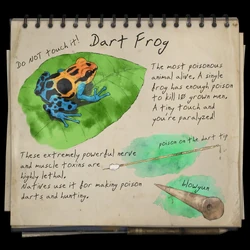 DO NOT touch it!
Dart Frog
The most poisonous
animal alive. A single
frog has enough poison
to kill 10 grown men.
A tiny touch and
you're paralyzed!
poison on the dart tip
These extremely powerful nerve
and muscle toxins are
highly lethal.
Natives use it for making poison
darts and hunting.
blowgun